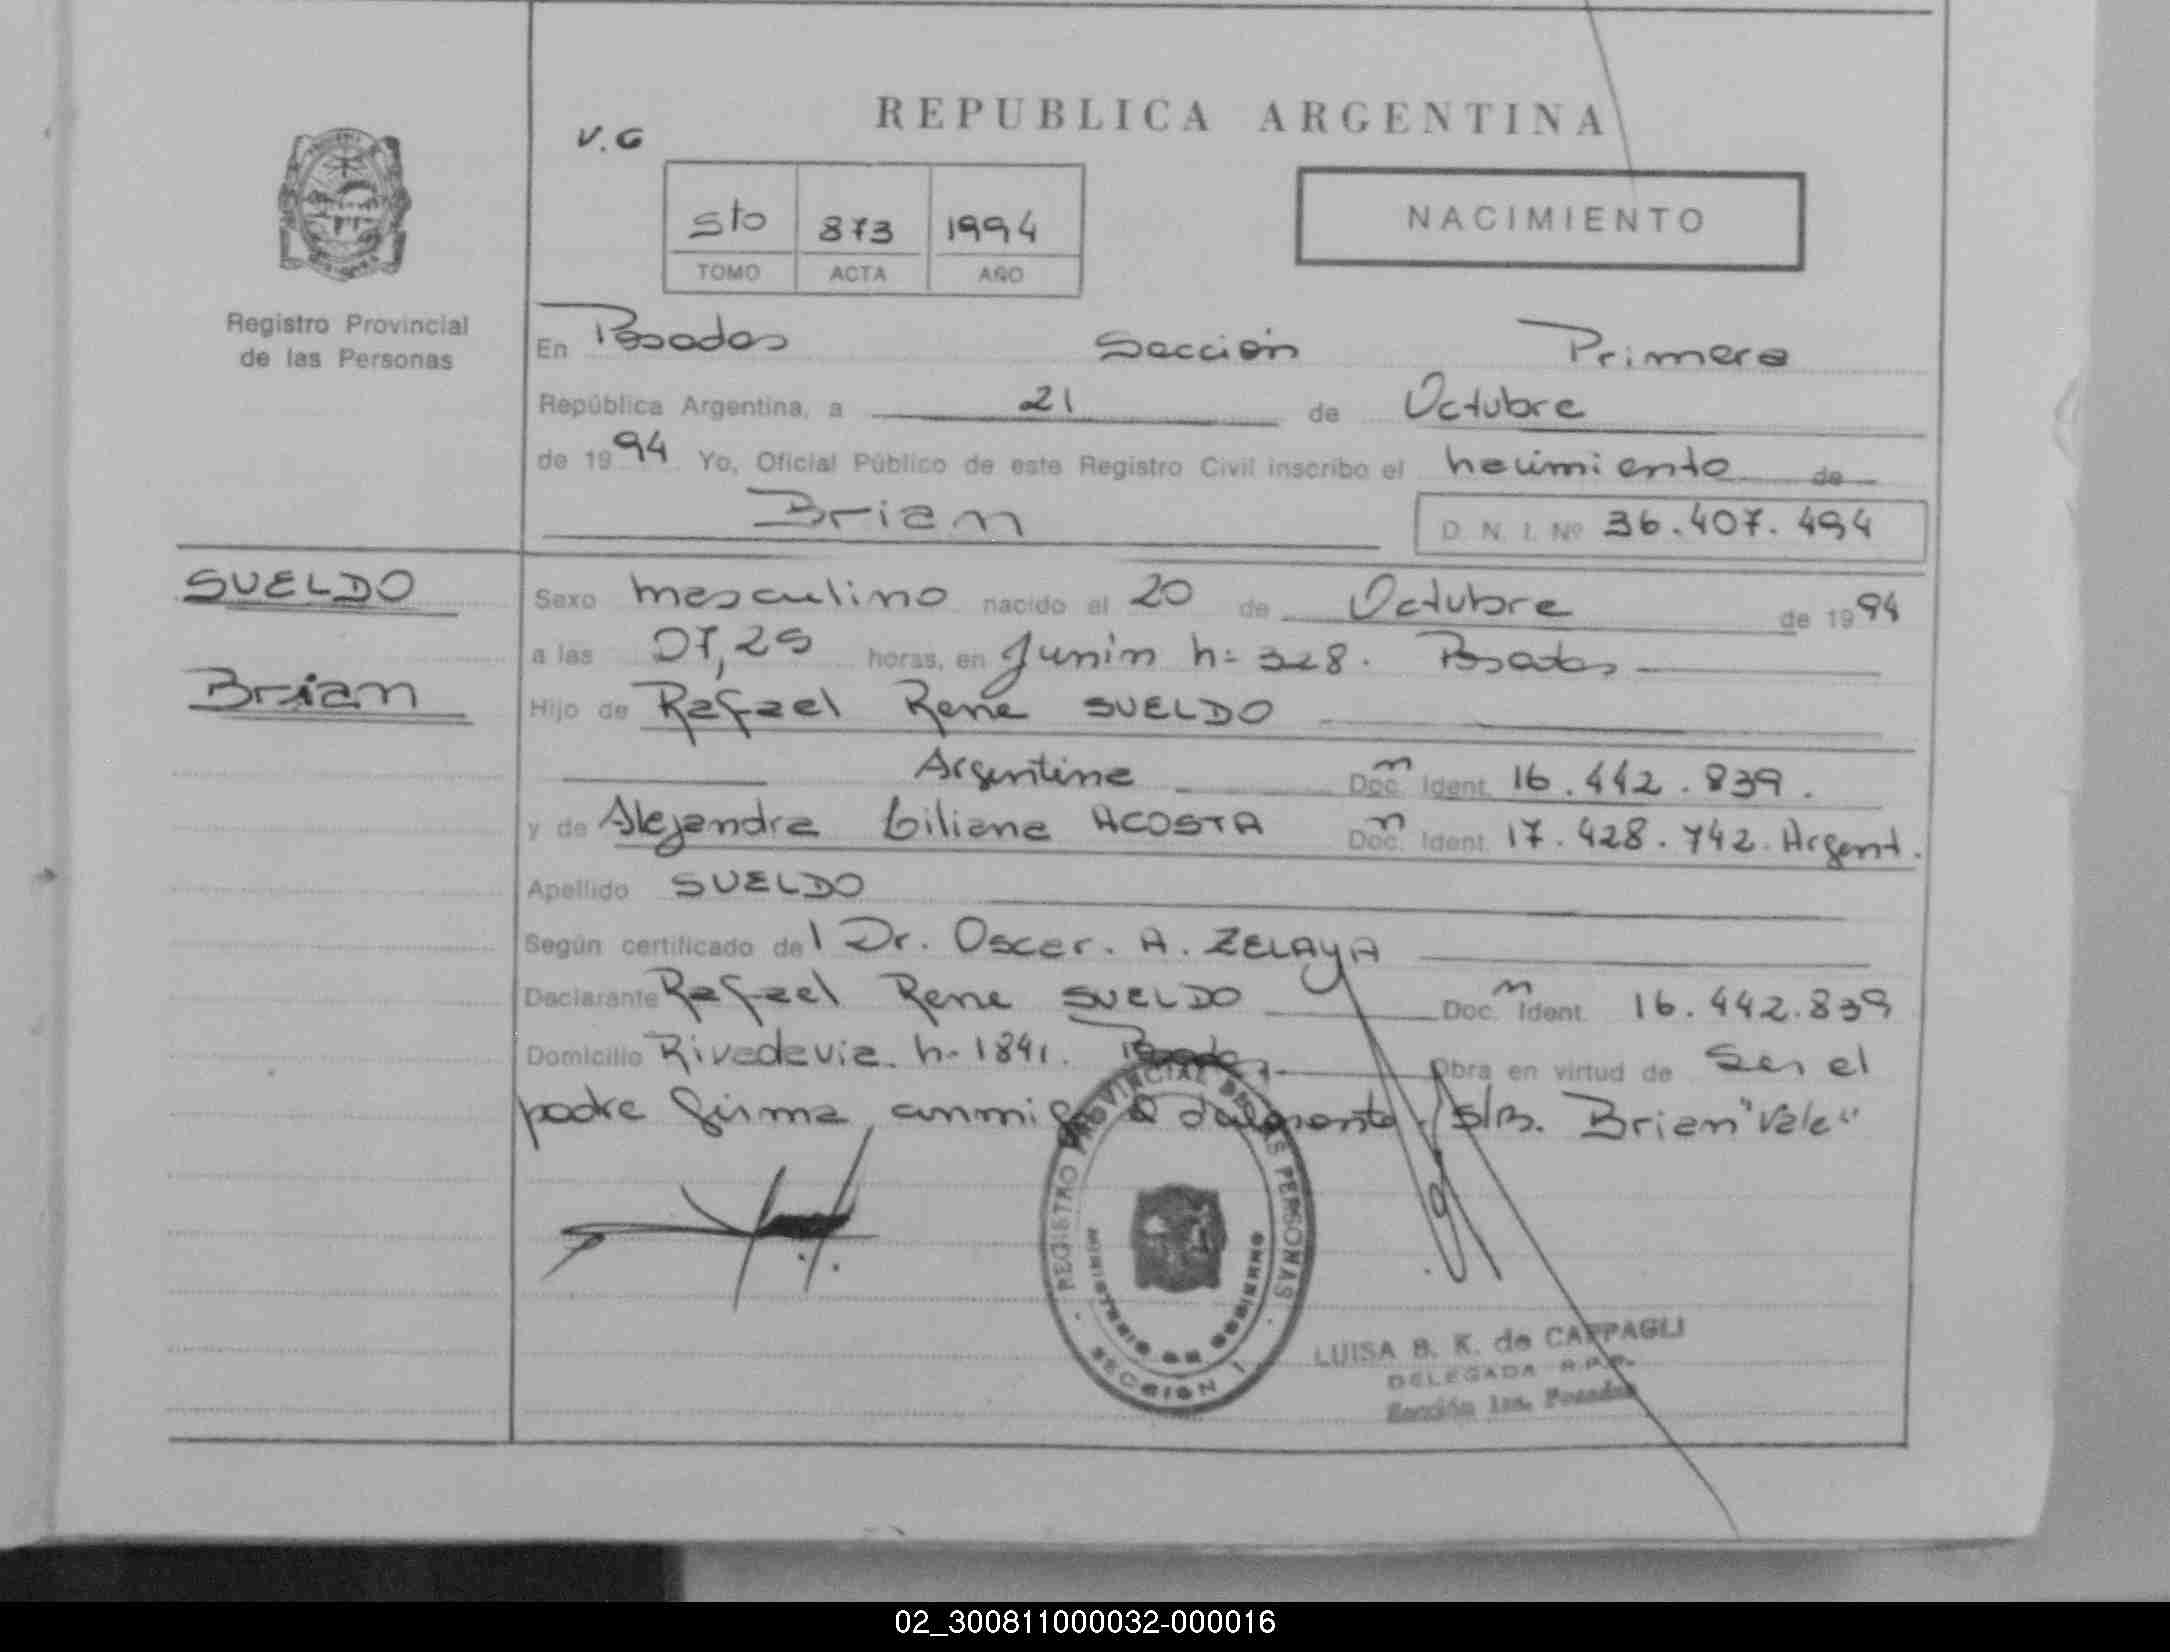 REPUBLICA ARGENTINA
V.G
5to 873 1994
TOMO ACTA AÑO
NACIMIENTO
Registro Provincial
de las Personas
En Posadas Sección Primera
República Argentina, a 21 de Octubre
de 1994 Yo, Oficial Público de este Registro Civil inscribo el nacimiento de
Brian
D. N. I. Nº 36.407.494
SUELDO
Brian
Sexo masculino nacido el 20 de Octubre de 1994
a las 07,25 horas, en Junin n= 328. Posadas
Hijo de Rafael Rene SUELDO
Argentina Doc. Ident. 16.442.839.
y de Alejandra Liliana ACOSTA Doc. Ident. 17.428.742. Argent.
Apellido SUELDO
Según certificado del Dr. Oscar. A. ZELAYA
Declarante Rafael Rene SUELDO Doc. Ident. 16.442.839
Domicilio Rivadavia n- 1841. Posadas Obra en virtud de Ser el
padre firma S/R. Brian "Vale"
REGISTRO PROVINCIAL DE LAS PERSONAS
MINISTERIO DE GOBIERNO
SECCION I
LUISA B. K. de CAPPAGLI
DELEGADA R.P.P.
Sección 1ra. Posadas
02_300811000032-000016